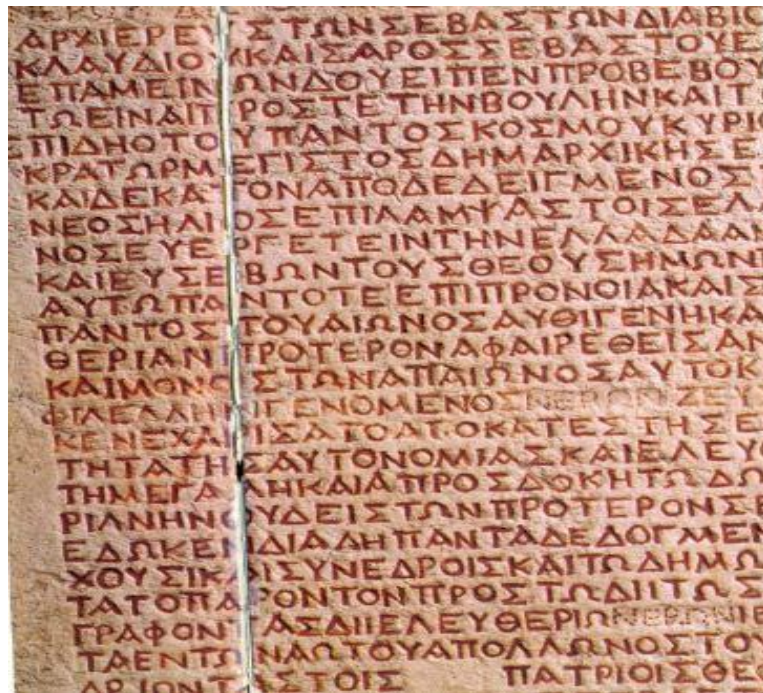 ΑΡΧΙΕΡΕΥΣΤΩΝΣΕΒΑΣΤΩΝΔΙΑΒΙΟ
ΚΛΑΥΔΙΟΥΚΑΙΣΑΡΟΣΣΕΒΑΣΤΟΥΕ
ΕΠΑΜΕΙΝΩΝΔΟΥΕΙΠΕΝΠΡΟΒΕΒΟΥ
ΤΩΕΙΝΑΙΠΡΟΣΤΕΤΗΝΒΟΥΛΗΝΚΑΙΤ
ΕΠΙΔΗΟΤΟΥΠΑΝΤΟΣΚΟΣΜΟΥΚΥΡΙ
ΚΡΑΤΩΡΜΕΓΙΣΤΟΣΔΗΜΑΡΧΙΚΗΣΕ
ΚΑΙΔΕΚΑΤΟΝΑΠΟΔΕΔΕΙΓΜΕΝΟΣ
ΝΕΟΣΗΛΙΟΣΕΠΙΛΑΜΨΑΣΤΟΙΣΕΛ
ΝΟΣΕΥΕΡΓΕΤΕΙΝΤΗΝΕΛΛΑΔΑΑΜ
ΚΑΙΕΥΣΕΒΩΝΤΟΥΣΘΕΟΥΣΗΜΩΝ
ΑΥΤΩΠΑΝΤΟΤΕΕΠΙΠΡΟΝΟΙΑΚΑΙΣ
ΠΑΝΤΟΣΤΟΥΑΙΩΝΟΣΑΥΘΙΓΕΝΗΚΑ
ΘΕΡΙΑΝΠΡΟΤΕΡΟΝΑΦΑΙΡΕΘΕΙΣΑΝ
ΚΑΙΜΟΝΟΣΤΩΝΑΠΑΙΩΝΟΣΑΥΤΟΚ
ΦΙΛΕΛΛΗΝΓΕΝΟΜΕΝΟΣΝΕΡΩΝΖΕΥ
ΚΕΝΕΧΑΡΙΣΑΤΟΑΠΟΚΑΤΕΣΤΗΣΕ
ΤΗΤΑΤΗΣΑΥΤΟΝΟΜΙΑΣΚΑΙΕΛΕΥΘ
ΤΗΜΕΓΑΛΗΚΑΙΑΠΡΟΣΔΟΚΗΤΩΔΩ
ΡΙΑΝΗΝΟΥΔΕΙΣΤΩΝΠΡΟΤΕΡΟΝΣΕ
ΕΔΩΚΕΝΔΙΑΔΗΠΑΝΤΑΔΕΔΟΓΜΕΝ
ΧΟΥΣΙΚΑΙΣΥΝΕΔΡΟΙΣΚΑΙΤΩΔΗΜΩ
ΤΑΤΟΠΑΡΟΝΤΟΝΠΡΟΣΤΩΔΙΙΤΩΣ
ΓΡΑΦΟΝΤΑΣΔΙΙΕΛΕΥΘΕΡΙΩΝΕΡΩΝΙΕ
ΤΑΕΝΤΩΝΑΩΤΟΥΑΠΟΛΛΩΝΟΣΤΟΥ
ΑΡΙΟΝΤΑΣΤΟΙΣ ΠΑΤΡΙΟΙΣΘΕ